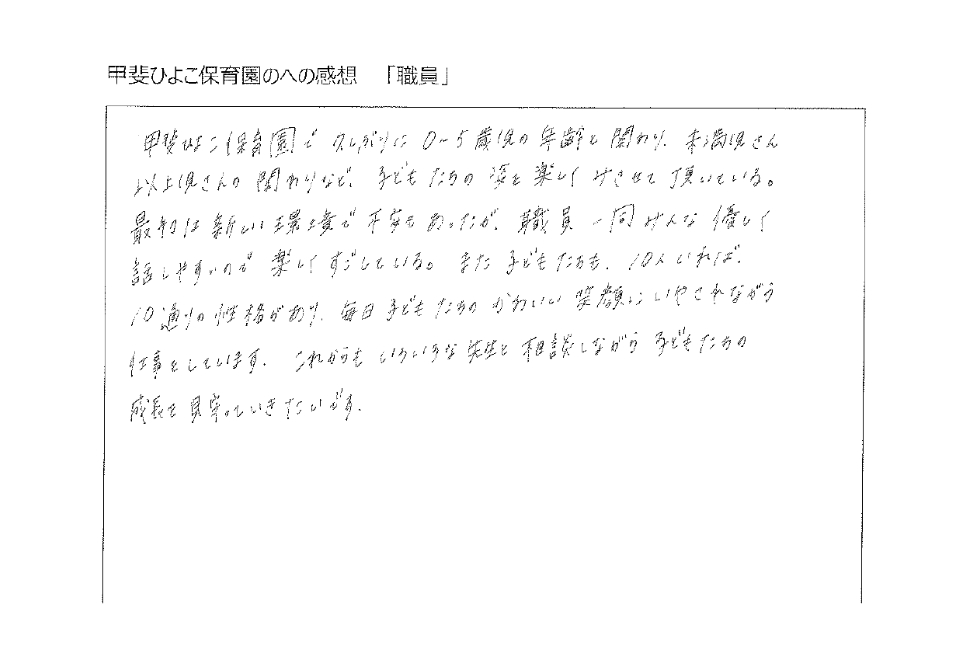 甲斐ひよこ保育園のへの感想　「職員」
甲斐ひよこ保育園で久しぶりに0～5歳児の年齢と関わり、未満児さん
以上児さんの関わりなど、子どもたちの姿を楽しくみさせて頂いている。
最初は新しい環境で不安もあったが、職員一同みんな優しく
話しやすいので楽しくすごしている。また子どもたちも、10人いれば、
10通りの性格があり、毎日子どもたちのかわいい笑顔にいやされながら
仕事をしています。これからもいろいろな先生と相談しながら子どもたちの
成長を見守っていきたいです。